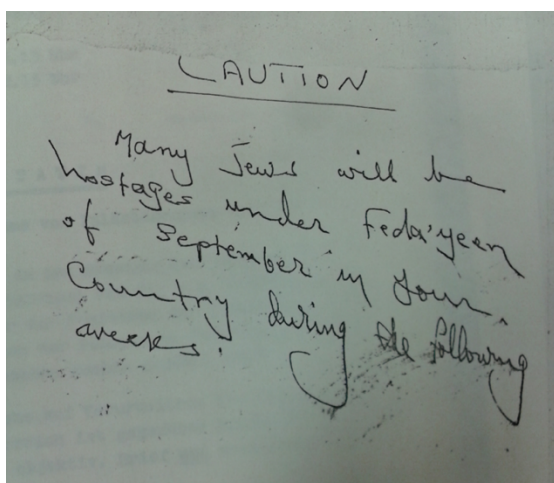 CAUTION
Many Jews will be
hostages under Feda'yeen
of September in your
Country during the following
weeks.